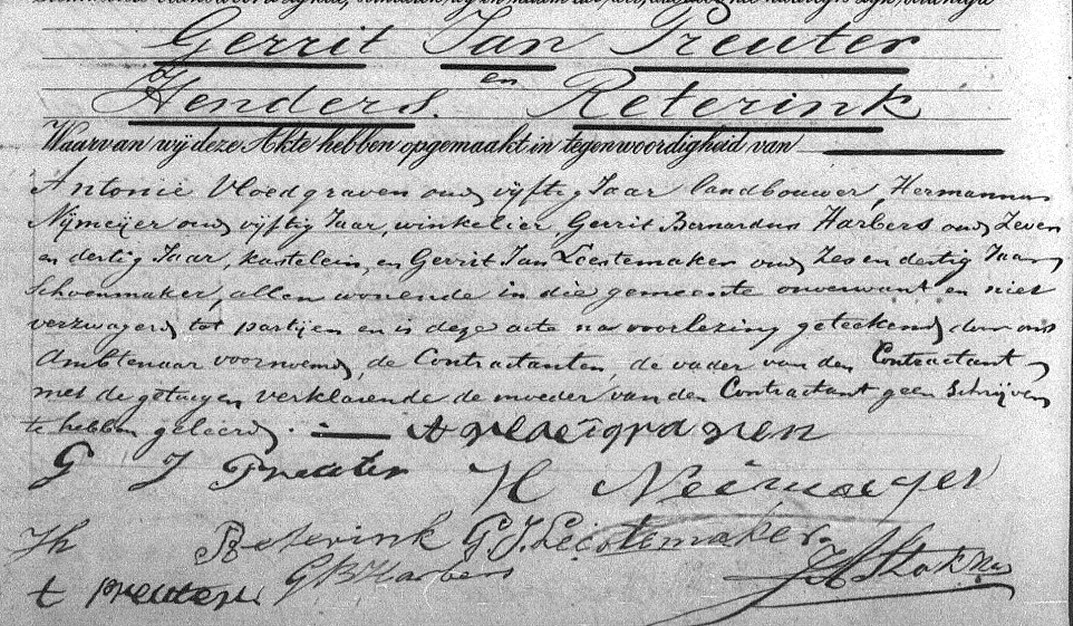 Gerrit Jan Preuter
en
Henders. Reterink
Waarvan wij deze Akte hebben opgemaakt in tegenwoordigheid van
Antonie Vloedgraven oud vijftig Jaar landbouwer, Hermannus
Nijmeijer oud vijftig Jaar, winkelier, Gerrit Bernardus Harbers oud Zeven
en dertig Jaar, kastelein, en Gerrit Jan Leestemaker oud Zes en dertig Jaar,
Schoenmaker, allen wonende in die gemeente onverwant en niet
verzwagerd tot partijen en is deze acte na voorlezing geteekend door ons
Ambtenaar voornoemd, de Contractanten, de vader van den Contractant,
met de getuigen verklarende de moeder van den Contractant geen Schrijven
te hebben geleerd.
A vloeigraven
G J Preuter H Neimeijer
H Reterink G. J. Leestemaker.
t preuter GB Harbers